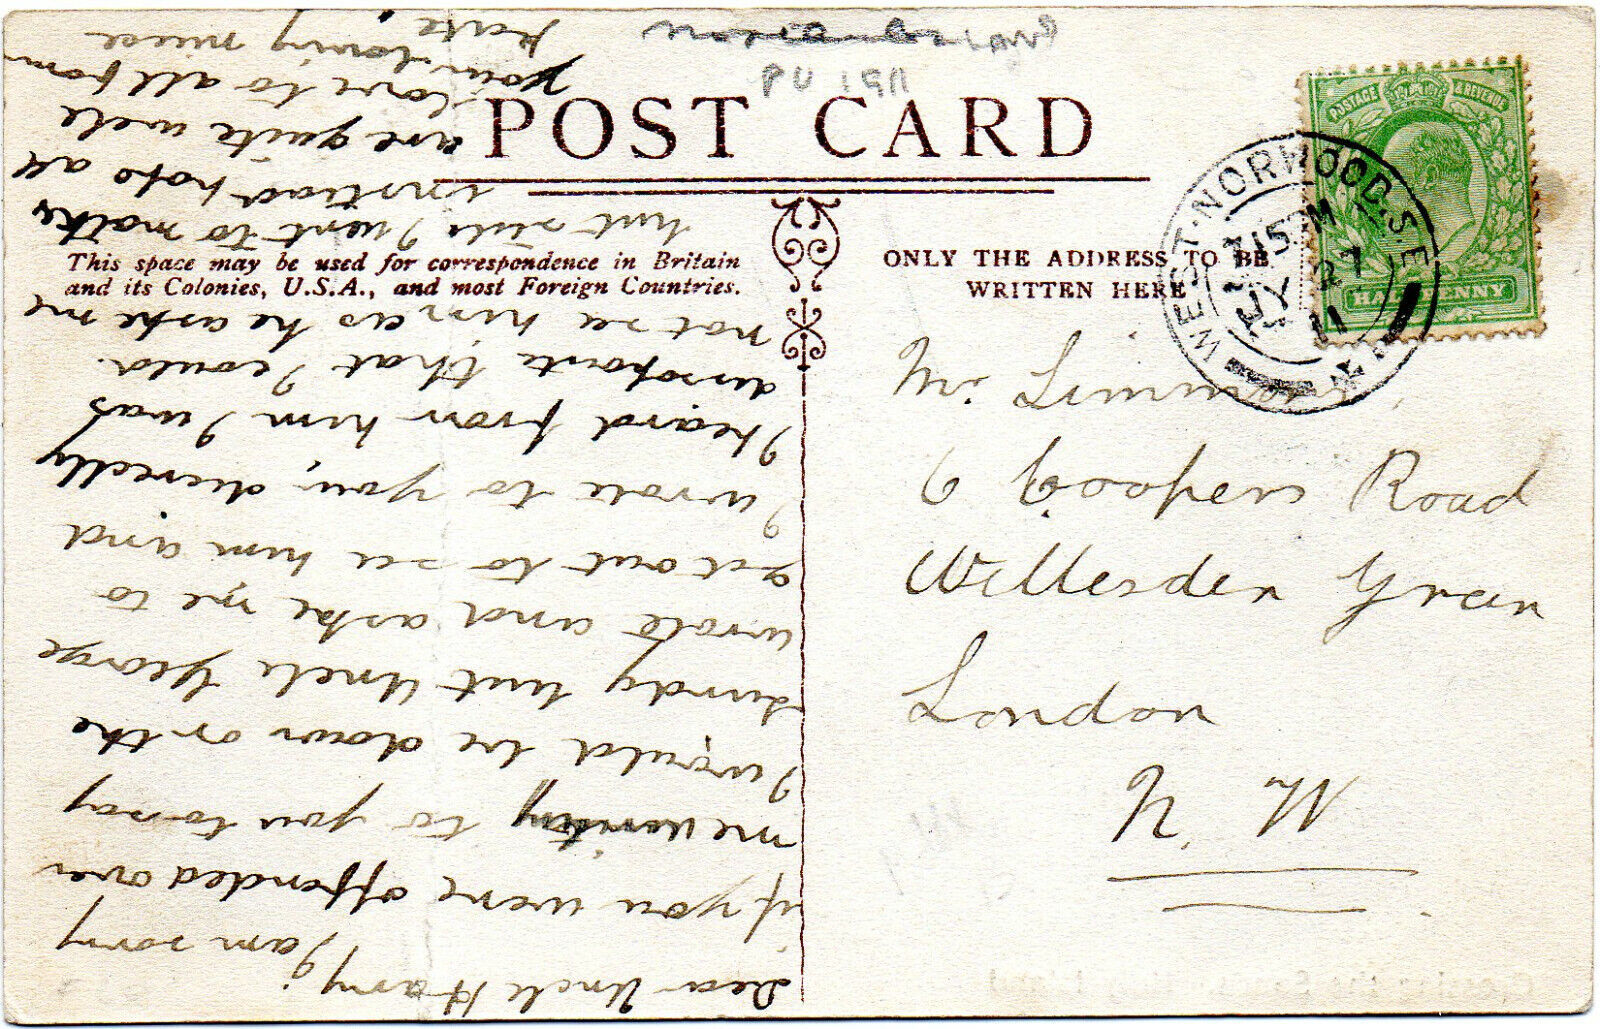 POST CARD
PU 1911
This space may be used for correspondence in Britain
and its Colonies, U.S.A., and most Foreign Countries.
ONLY THE ADDRESS TO BE
WRITTEN HERE
POSTAGE & REVENUE
HALFPENNY
WEST NORWOOD. S.E.
7.15 PM
JY 27
11
Dear Uncle Harry
I am sorry
if you were offended over
me writing to you to say
I would be down on the
Surdy but Uncle George
wrote and aske me to
get out to see him and
I wrote to you, directly
I heard from him I was
dissopinte that I could.
not see him as he aske me
but still I went to
instead hope all
are quite well
love to all from
your loving niece
Kate
Mr
6 Coopers Road
Willesden Green
London
N. W